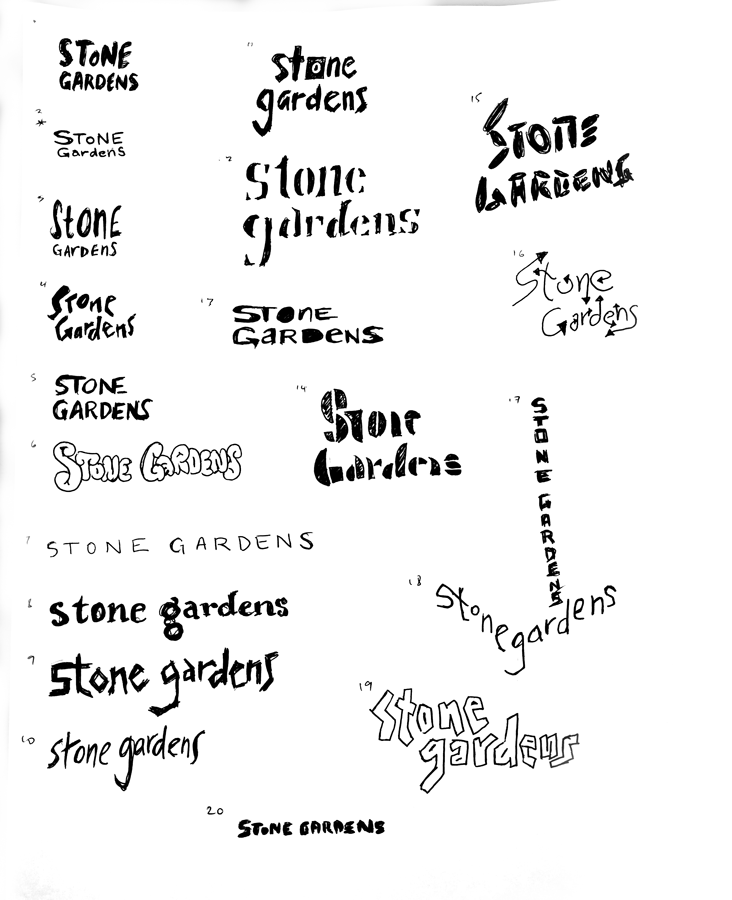 STONE
GARDENS
2
*
STONE
GardenS
3
StONE
GARDENS
4
STone
Gardens
5
STONE
GARDENS
6
STONE GARDENS
7
STONE GARDENS
8
stone gardens
9
stone gardens
10
stone gardens
11
stone
gardens
12
stone
gardens
17
STONE
GARDeNS
14
Stone
Gardens
15
STONE
GARDENS
16
Stone
Gardens
17
STONE GARDENS
18
Stonegardens
19
stone
gardens
20
STONE GARDENS